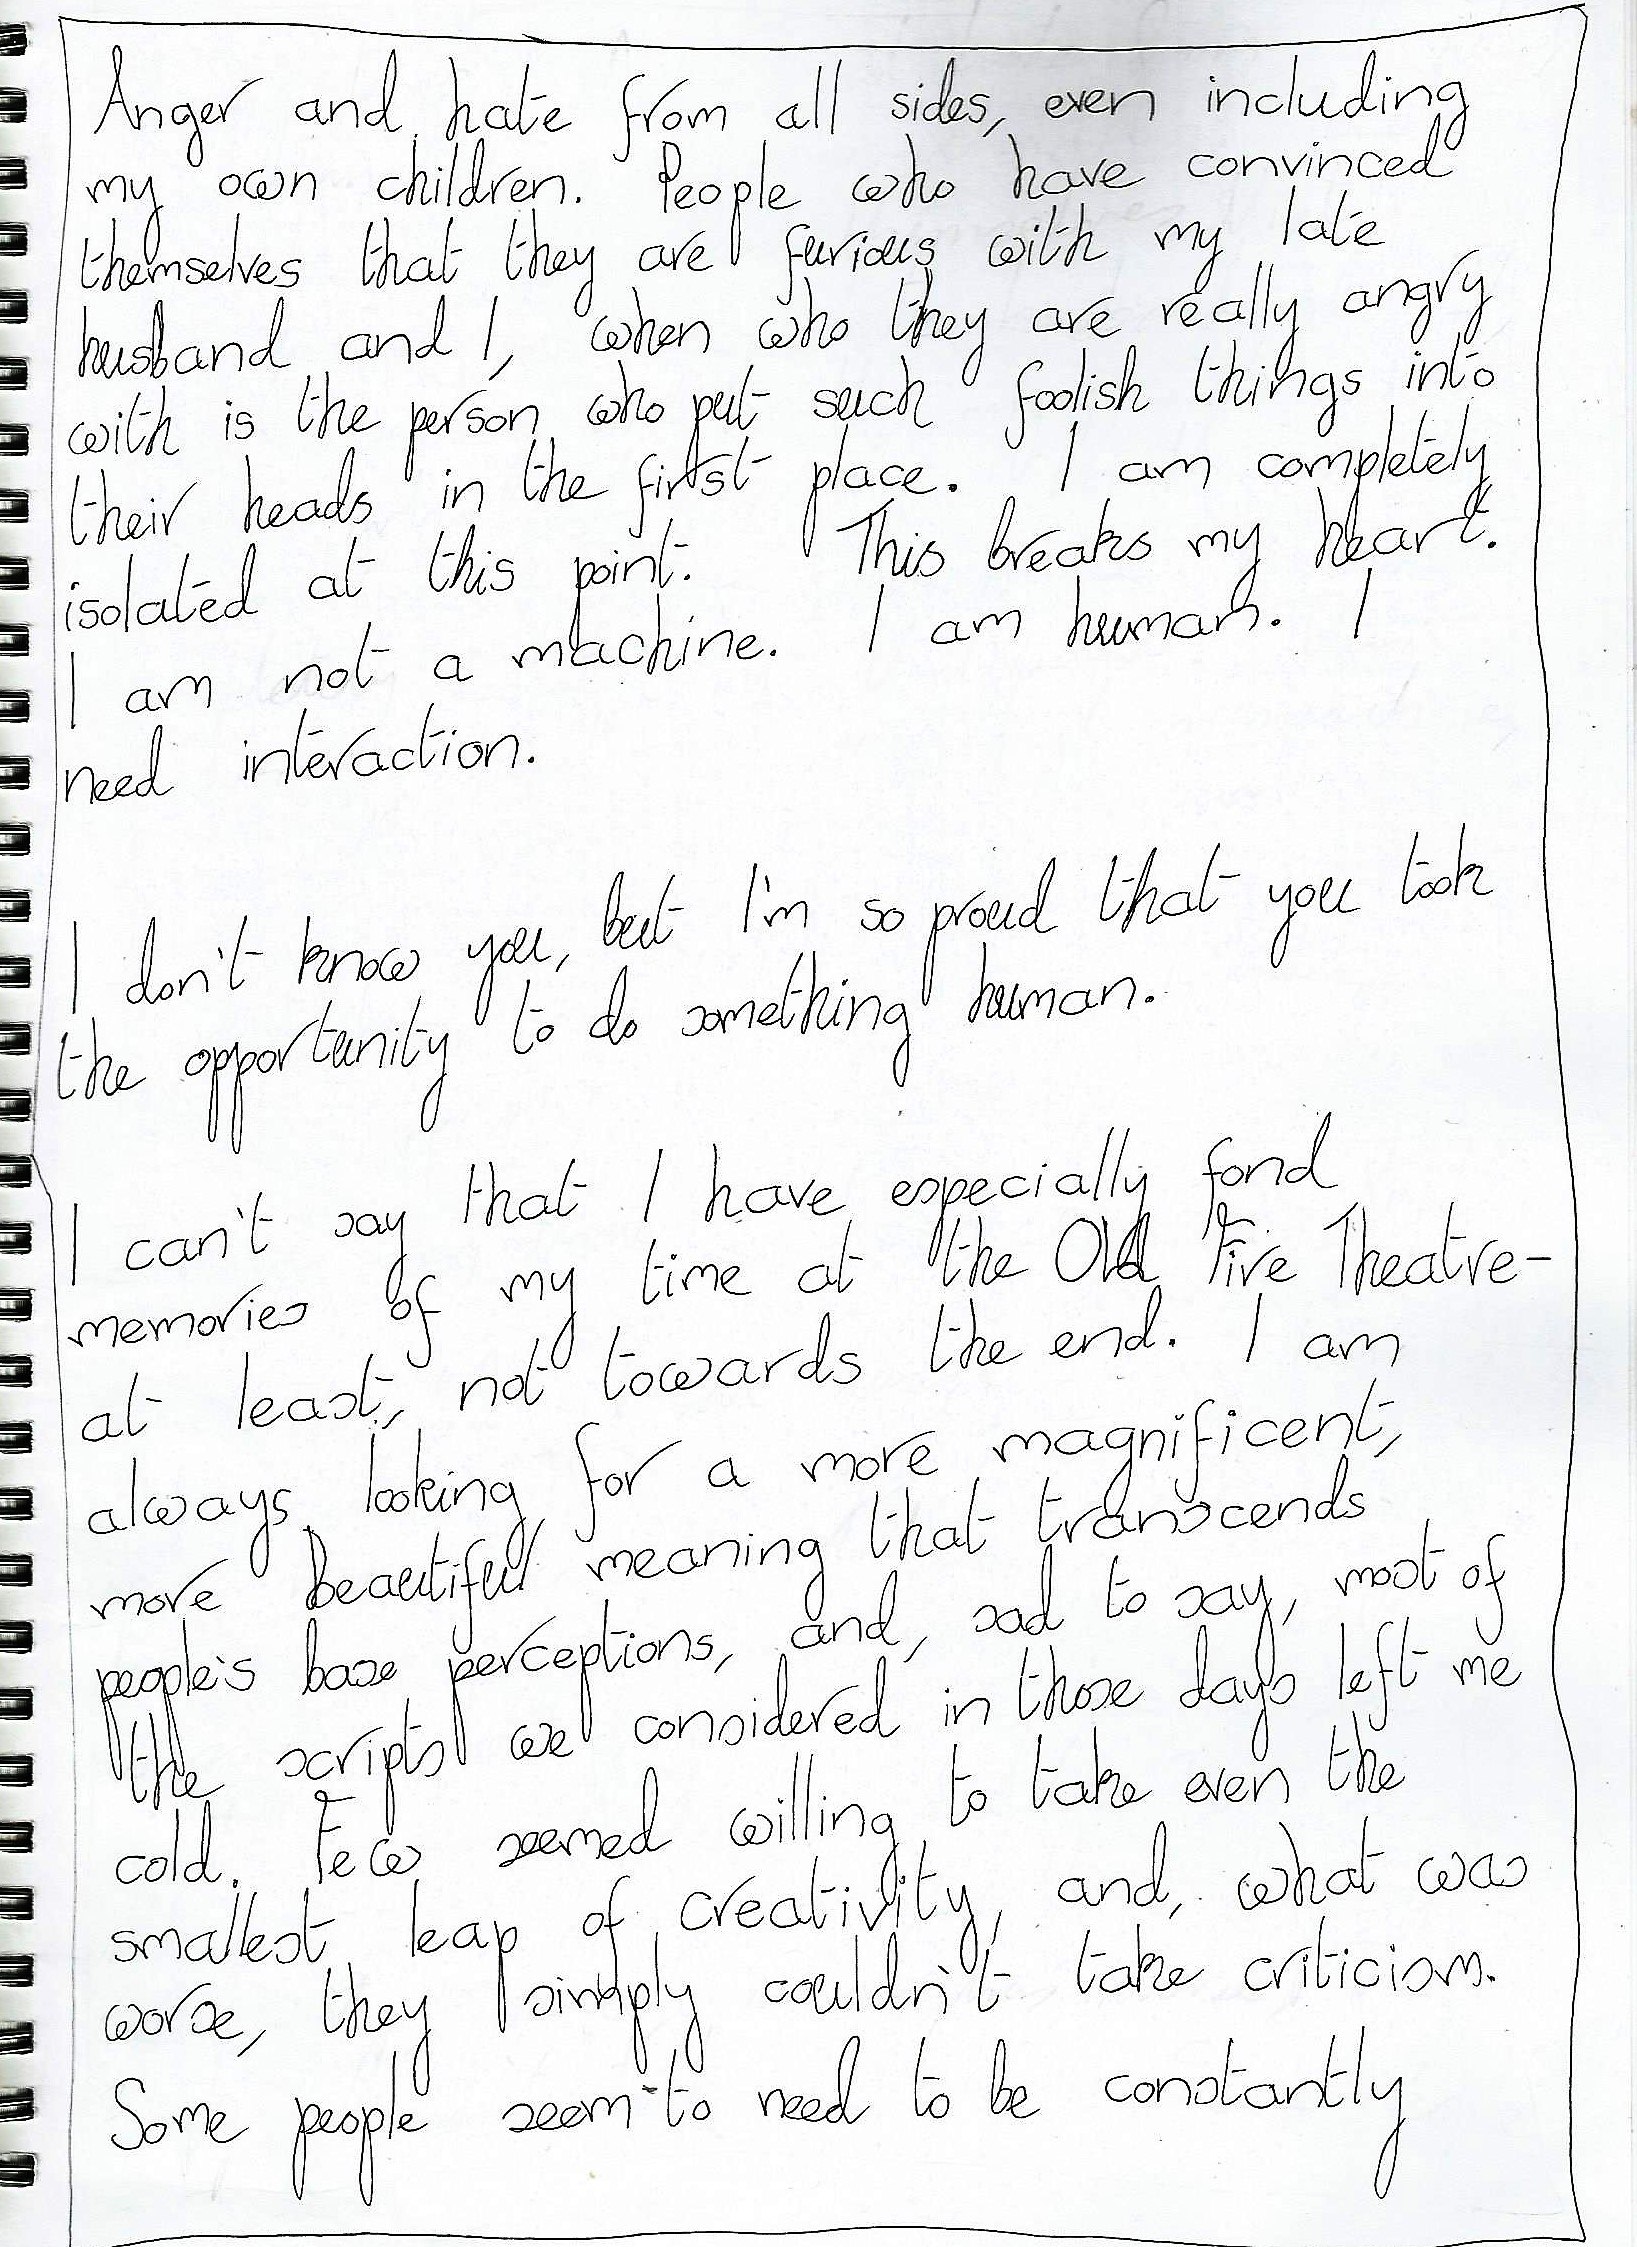 Anger and hate from all sides, even including
my own children. People who have convinced
themselves that they are furious with my late
husband and I, when who they are really angry
with is the person who put such foolish things into
their heads in the first place. I am completely
isolated at this point. This breaks my heart.
I am not a machine. I am human. I
need interaction.
I don't know you, but I'm so proud that you took
the opportunity to do something human.
I can't say that I have especially fond
memories of my time at the Old Fire Theatre-
at least, not towards the end. I am
always looking for a more magnificent,
more beautiful meaning that transcends
people's base perceptions, and, sad to say, most of
the scripts we considered in those days left me
cold. Few seemed willing to take even the
smallest leap of creativity, and, what was
worse, they simply couldn't take criticism.
Some people seem to need to be constantly